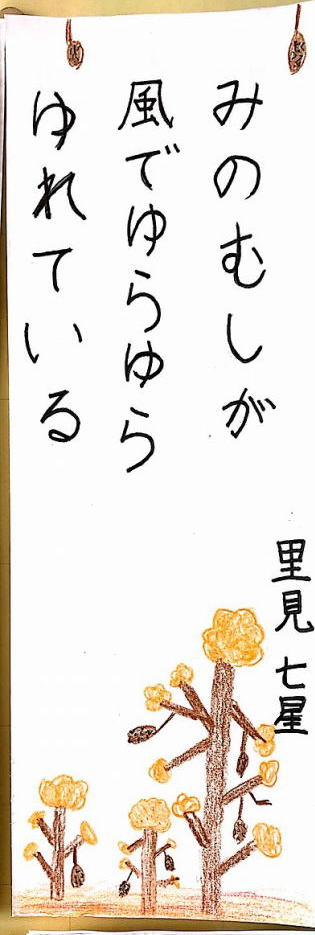 みのむしが
風でゆらゆら
ゆれている
里見 七星